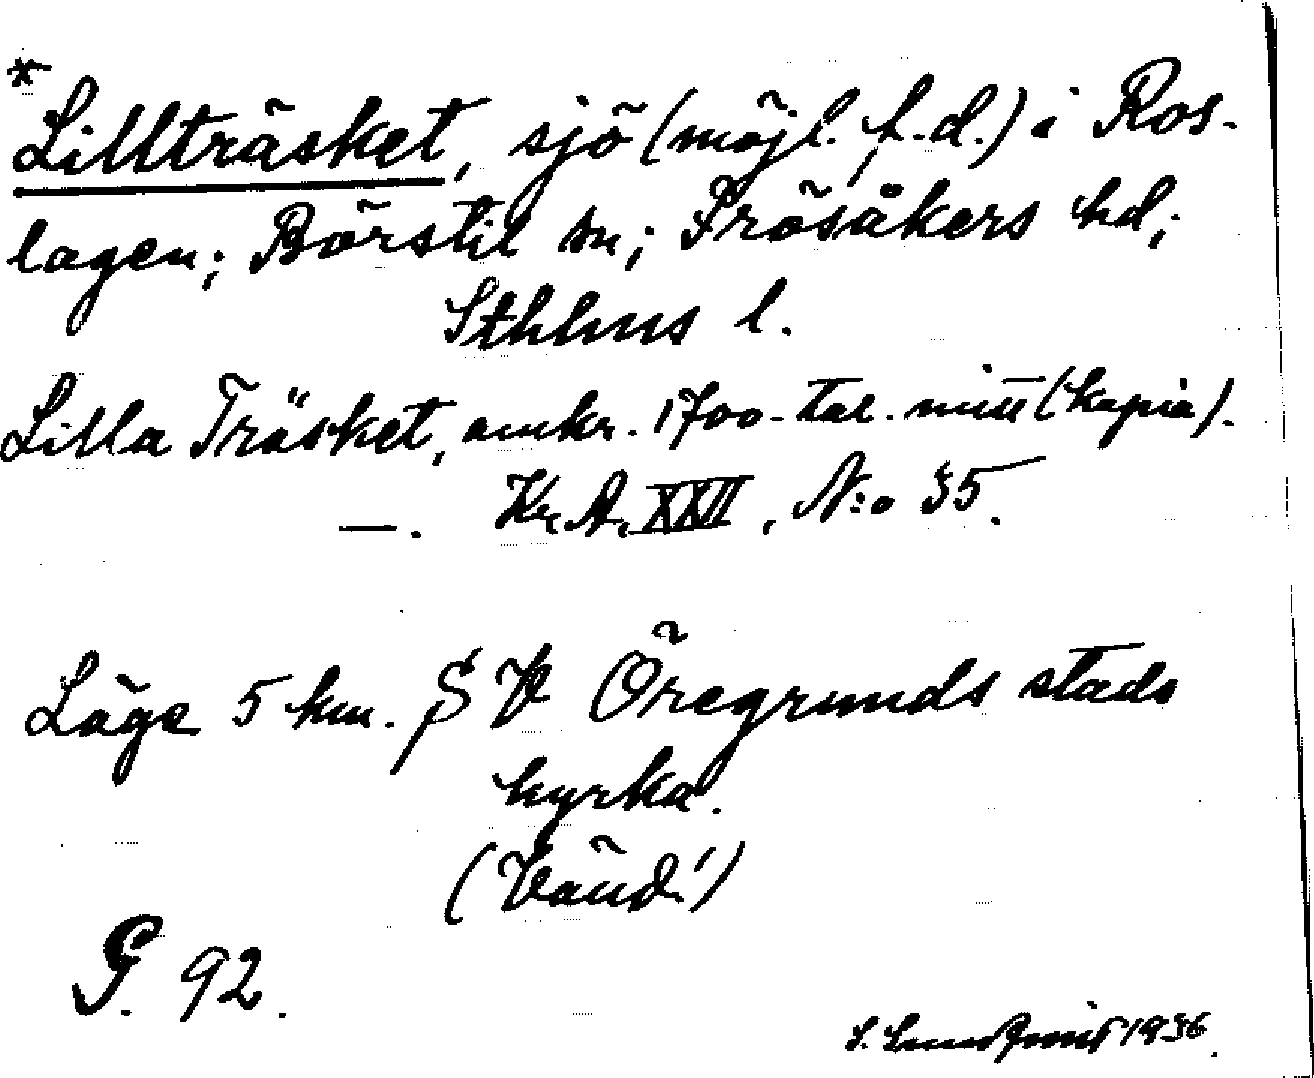 *
Lillträsket, sjö (möjl. f.d.) i Ros-
lagen; Börstil sn; Frösåkers hd;
Sthlms l.
Lilla Träsket, omkr. 1700-tal. mitt (kopia).
—. Kr. A. XXII, N:o 35.
Läge 5 km. S V Öregrunds stads
kyrka.
(Vänd!)
G. 92.
S. Lundqvist 1936.